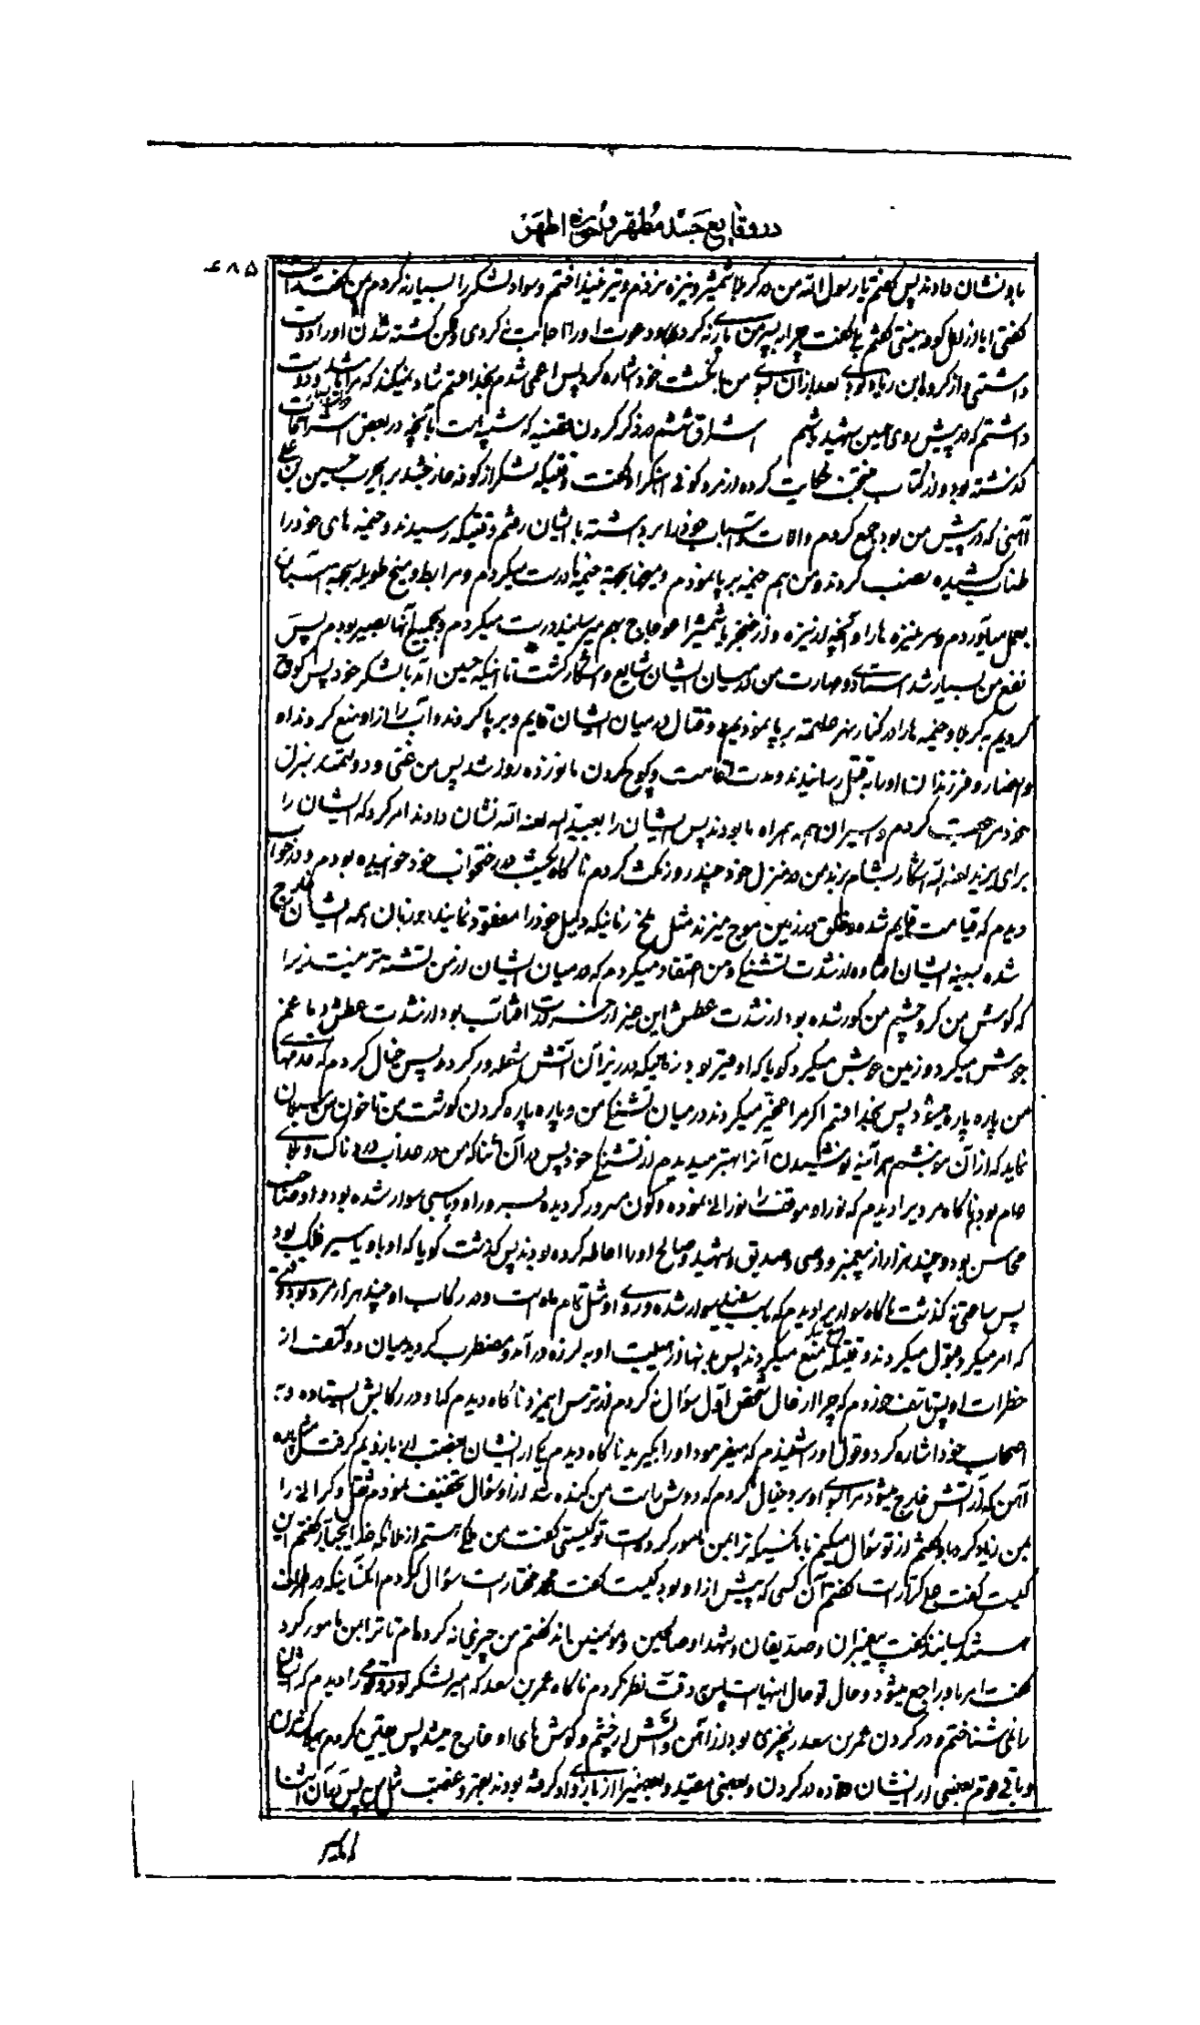 در وقایع جسد مطهر و نحوره اطهر
۶۸۵
باو نشان دادند پس گفتم یا رسول الله من در کربلا شمشیر و نیزه نزدم و تیر نینداختم و سواد لشکر را بسیار نه کردم من گفت
گفتی ایا از اهل کوفه نیستی گفتم بلی گفت چرا پسر من یاری نه کردی و دعوت او را اجابت نه کردی و لکن کشته شدن او را دوست
داشتی و از گروه ابن زیاد بودی بعد از آن بسوی من بانگشت خود اشاره کرد پس اعمی شدم بخدا قسم شاد نمیکند که مرا باشد و دوست
داشتم که در پیش روی حسین شهید باشم اشراق ششم در ذکر کردن قضیه که شبیه است بآنچه در بعض اشراقات
گذشته بود و از کتاب منتخب حکایت کرده از مرد کوفی آهنگر او گفت وقتیکه لشکر از کوفه خارج شد برای حرب حسین بن علی
آهنی که در پیش من بود جمع کردم و الات و اسباب خود را برداشته با ایشان رفتم وقتیکه رسیدند و خیمه های خود را
طناب کشیده نصب کردند و من هم خیمه بر پا نمودم و میخها بجهة خیمه‌ها درست میکردم و مرابط و میخ طویله بجهة اسبان
بعمل میآوردم و سر نیزه ها را و آنچه از نیزه و از خنجر یا شمشیر اعوجاج بهم میرسانید درست میکردم و بجمیع آنها بصیر بودم پس
نفع من بسیار شد استادی و مهارت من در میان ایشان شایع و آشکار گشت تا اینکه حسین آمد با لشکر خود پس کوچ
کردیم به کربلا و خیمه ها را در کنار نهر علقمه بر پا نمودیم و قتال در میان ایشان قایم و بر پا کردند و آب را از او منع کردند او
و انصار و فرزندان او را به قتل رسانیدند و مدت اقامت و کوچ کردن ما نوزده روز شد پس من غنی و دولتمند بمنزل
خود مراجعت کردم و اسیران هم به همراه ما بودند پس ایشان را بعبیدالله لعنه الله نشان دادند امر کرد که ایشان را
برای یزید لعنه الله آشکار بشام برند من در منزل خود چند روز مکث کردم ناگاه یکشب در رختخواب خود خوابیده بودم در خواب
دیدم که قیامت قایم شده و خلق در زمین موج میزند مثل ملخ زمانیکه دلیل خود را مفقود نمایند و زبان همه ایشان خارج
شده بسینه ایشان افتاده از شدت تشنگی و من اعتقاد میکردم که در میان ایشان از من تشنه تر نیست زیرا
که گوش من کر و چشم من کور شده بود از شدت عطش این غیر از حرارت آفتاب بود از شدت عطش دماغم
جوش میکرد و زمین جوش میکرد گویا که او قیر بود زمانیکه در زیر آن آتش شعله ور کردد پس خیال کردم که قدمهای
من پاره پاره میشود پس بخدا قسم اگر مرا مخیر میکردند در میان تشنگی من و پاره پاره کردن گوشت من تا خون من سیلان
نماید که از آن بنوشم هر آینه نوشیدن آنرا بهتر میدیدم از تشنگی خود پس در آن اثنا که من در عذاب دردناک و بلای
عام بودم ناگاه مردیرا دیدم که نور او موقف را نورانی نموده و کون مسرور گردیده بسرور او و باسبی سوار شده بود و او صاحب
محاسن بود و چند هزار از پیغمبر و وصی و صدیق و شهید و صالح او را احاطه کرده بودند پس گذشت گویا که او باد یا سیر فلک بود
پس ساعتی گذشت ناگاه سواریرا دیدم که باسب سفید سوار شده و روی او مثل تمام ماه است و در رکاب او چند هزار مرد بودند وقتی
که امر میکرد قبول میکردند وقتیکه منع میکرد منع میکردند پس بدنها از هیبت او به لرزه در آمد و مضطرب گردید میان دو کتف از
خطرات او پس تاسف خوردم که چرا از حال شخص اول سؤال نه کردم از ترس این مرد ناگاه دیدم که او در رکابش ایستاده و به
اصحاب خود اشاره کرد و قول او را شنیدم که میفرمود او را بگیرید ناگاه دیدم یکی از ایشان بغضب از بازویم گرفت مثل پاره
آهن که از آتش خارج میشود مرا بسوی او برد و خیال کردم که دوش راست من کنده شد از او سؤال تخفیف نمودم ثقل و گرانی را
بمن زیاد کرد باو گفتم از تو سؤال میکنم بآنکسیکه ترا بمن مامور کرده است تو کیستی گفت من ملکی هستم از ملائکه خدای جبار گفتم این
کیست گفت علی کرار است گفتم آن کسی که پیش از او بود کیست گفت محمد مختار است سؤال کردم آنکسانیکه در اطراف
هستند کیانند گفت پیغمبران و صدیقان و شهدا و صالحین و مؤمنین اند گفتم من چیزی نه کرده‌ام تا ترا بمن مامور کرد
گفت امر باو راجع میشود و حال تو حال اینهاست پس دقت نظر کردم ناگاه عمر بن سعد که امیر لشکر بود و قومی را دیدم که ایشان
را نمی شناختم و در گردن عمر بن سعد زنجیری بود از آهن و آتش از چشم و گوش های او خارج میشد پس یقین کردم
و باقی قوم بعضی از ایشان قلاده در گردن و بعضی مقید و بعضیرا از بازوی او گرفته بودند بقهر و غضب مثل من پس در آن اثنا